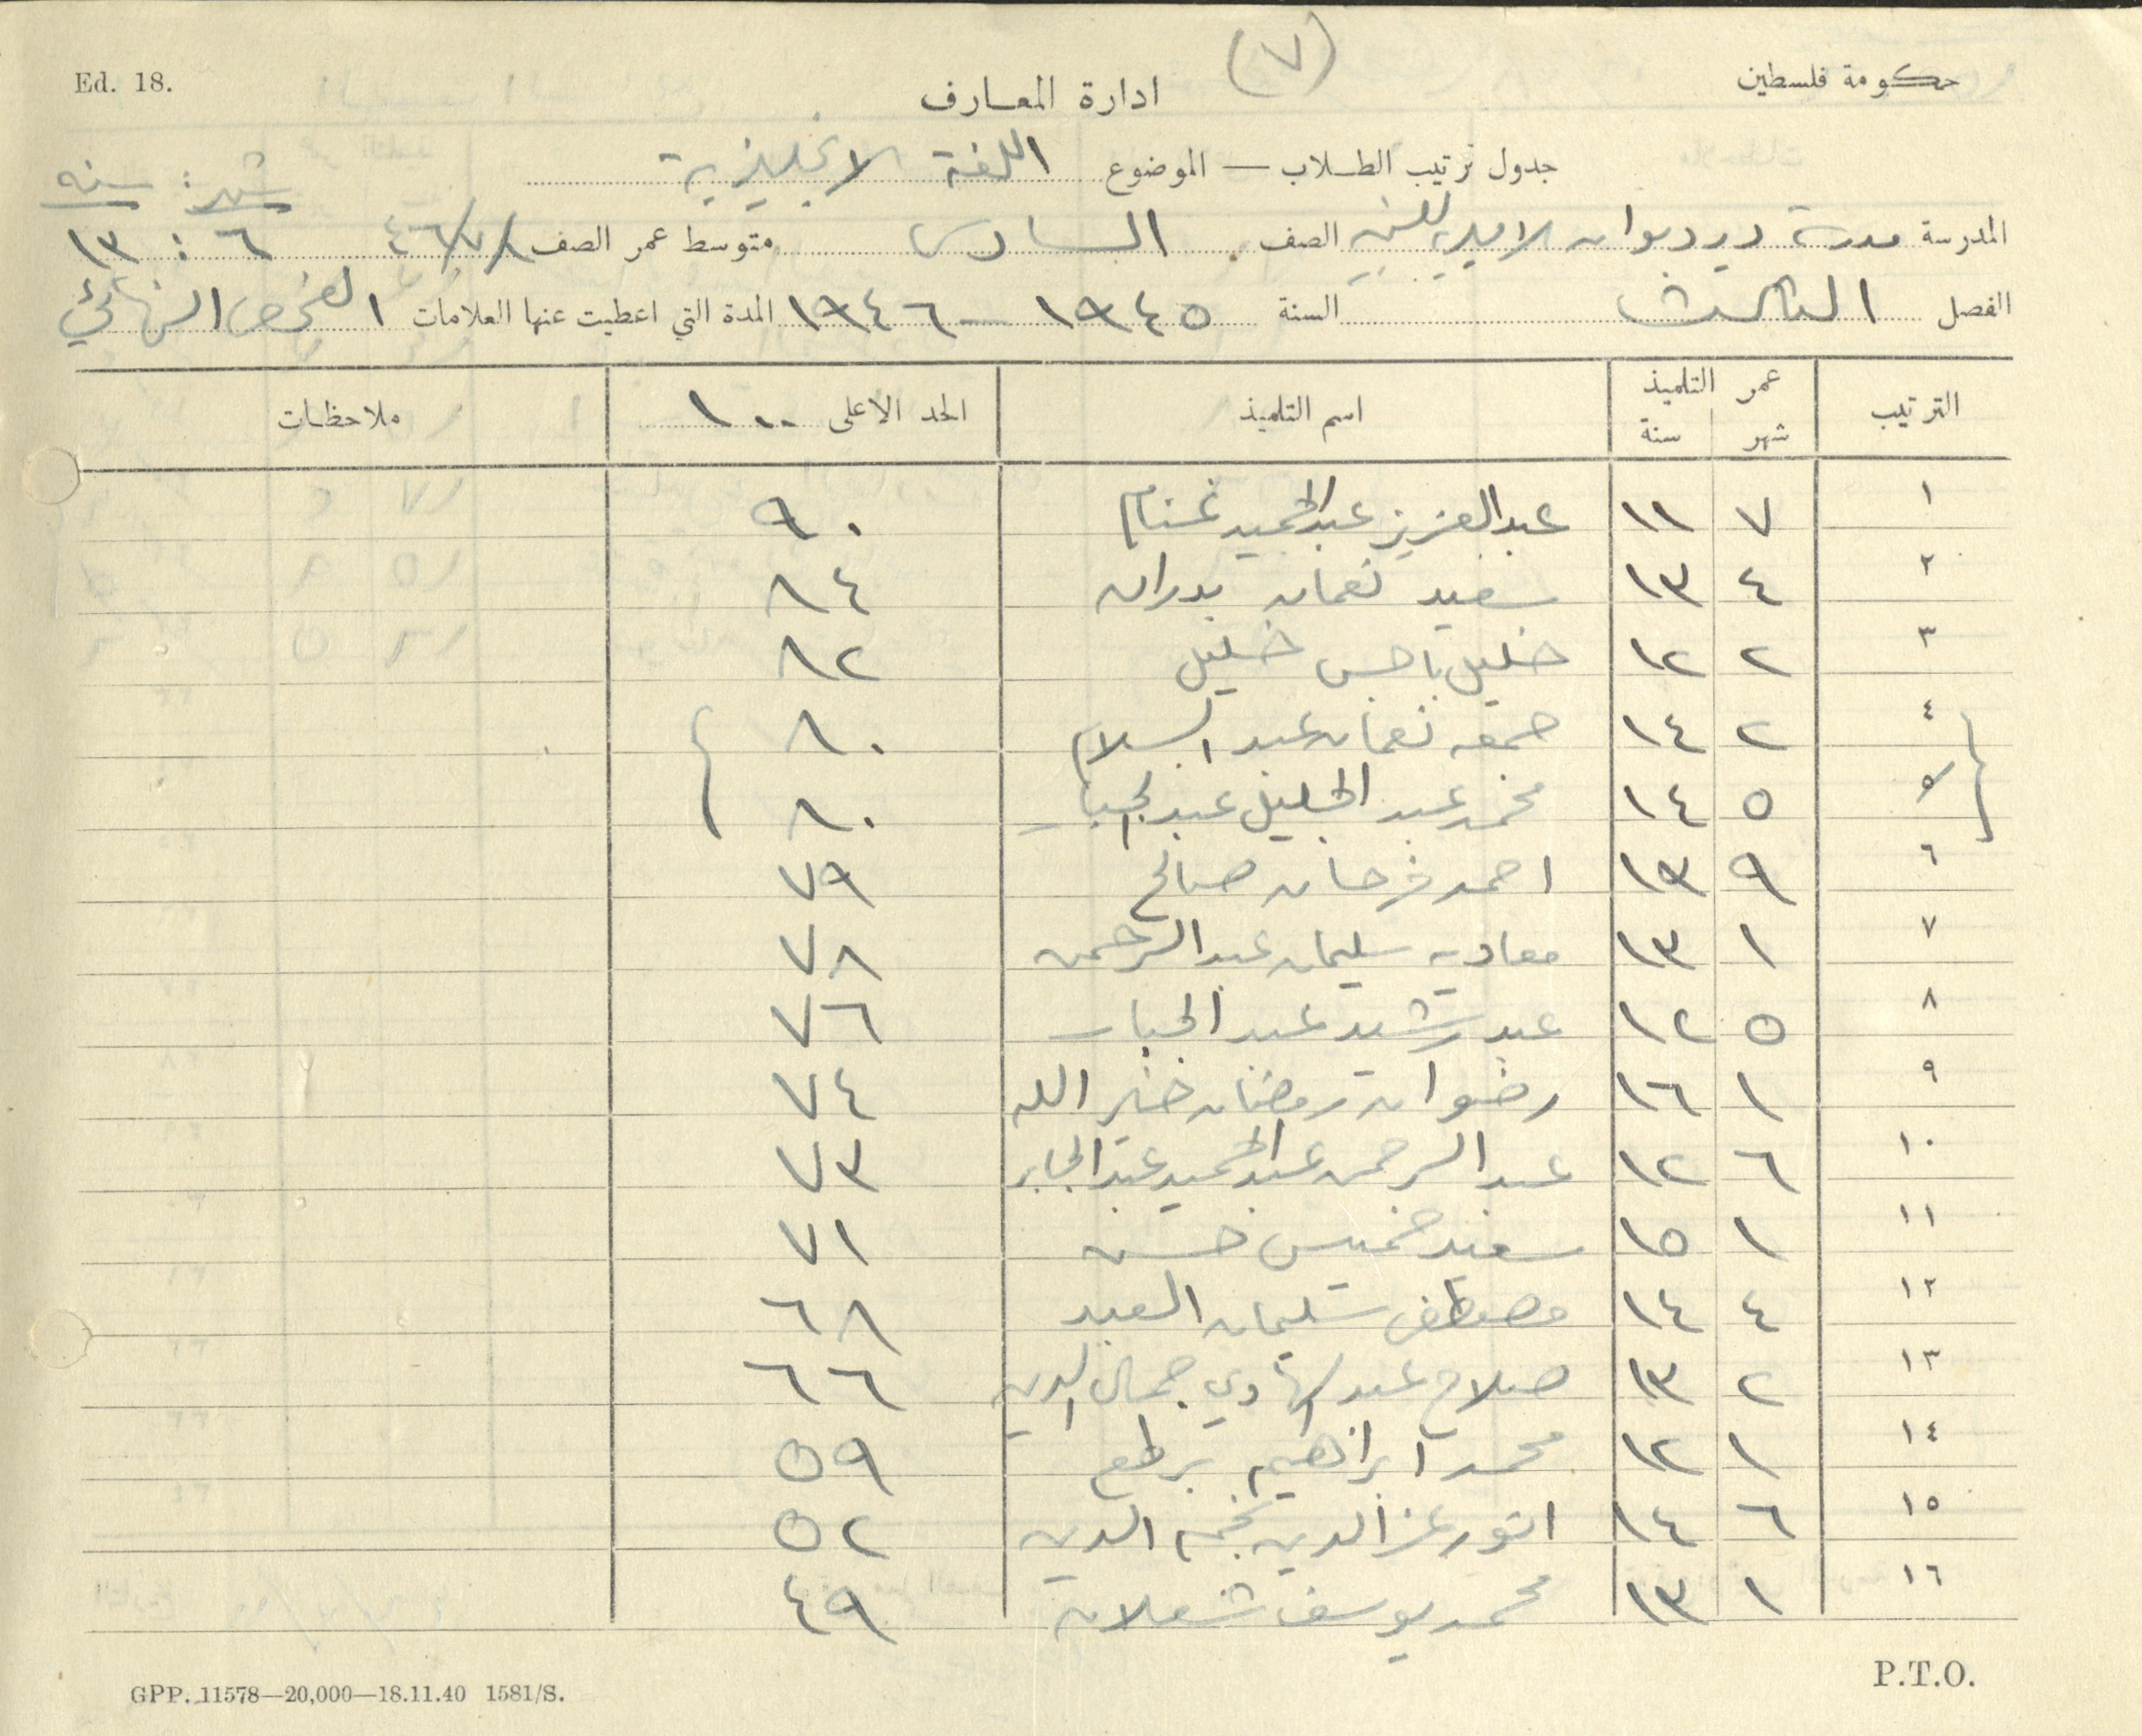 (٧)
حكومة فلسطين
Ed. 18.
ادارة المعارف
جدول ترتيب الطلاب — الموضوع اللغة الانجليزية
شهر : سنه
المدرسة مدرسة ديردبوان الاميرية للبنين الصف السادس متوسط عمر الصف ٤٦/٧/١ ٦ : ١٣
الفصل الثالث السنة ١٩٤٥ - ١٩٤٦ المدة التي اعطيت عنها العلامات الفحص النهائي
الترتيب عمر التلميذ اسم التلميذ الحد الاعلى ١٠٠ ملاحظات
شهر سنة
١ ٧ ١١ عبد العزيز عبد الحميد غنام ٩٠
٢ ٤ ١٣ سعيد نعمان بدران ٨٤
٣ ٢ ١٢ خليل باجس خليل ٨٢
٤ ٢ ١٤ جمعه نعمان عبد السلام ٨٠
٥ ٥ ١٤ محمد عبد الجليل عبد الجبار ٨٠
٦ ٩ ١٣ احمد فرحان صالح ٧٩
٧ ١ ١٣ معاويه سليمان عبد الرحمن ٧٨
٨ ٥ ١٢ عبد رشيد عبد الجبار ٧٦
٩ ١ ١٦ رضوان رمضان خير الله ٧٤
١٠ ٦ ١٢ عبد الرحمن عبد الحميد عبد الجابر ٧٣
١١ ١ ١٥ سعيد خميس حسن ٧١
١٢ ٤ ١٤ مصطفى سليمان العبد ٦٨
١٣ ٢ ١٣ صلاح عبد الهادي جمال الدين ٦٦
١٤ ١ ١٢ محمد ابراهيم برطع ٥٩
١٥ ٦ ١٤ انور عز الدين نجم الدين ٥٢
١٦ ١ ١٣ محمد يوسف شعلان ٤٩
GPP. 11578—20,000—18.11.40 1581/S.
P.T.O.